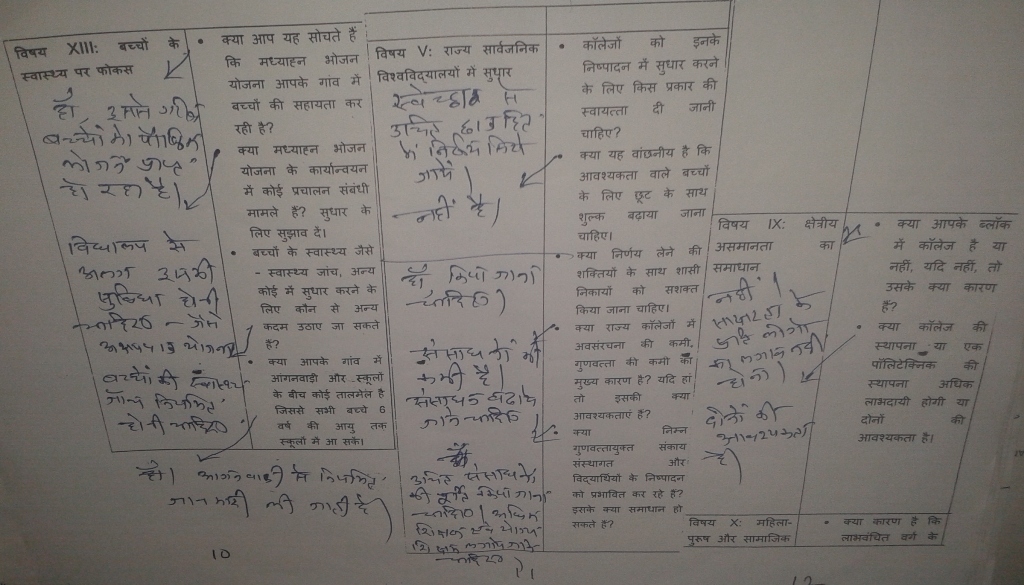 विषय XIII: बच्चों के
स्वास्थ्य पर फोकस
हाँ, उससे गरीब
बच्चों को पौष्टिक
हो रहा है।
विद्यालय से
अलग उसकी
सुविधा होनी
चाहिए – जैसे
बच्चों की स्वास्थ्य
जाँच नियमित
होनी चाहिए
• क्या आप यह सोचते हैं
कि मध्याह्न भोजन
योजना आपके गांव में
बच्चों की सहायता कर
रही है?
• क्या मध्याह्न भोजन
योजना के कार्यान्वयन
में कोई प्रचालन संबंधी
मामले हैं? सुधार के
लिए सुझाव दें।
• बच्चों के स्वास्थ्य जैसे
- स्वास्थ्य जांच, अन्य
कोई में सुधार करने के
लिए कौन से अन्य
कदम उठाए जा सकते
हैं?
• क्या आपके गांव में
आंगनवाड़ी और स्कूलों
के बीच कोई तालमेल है
जिससे सभी बच्चे 6
वर्ष की आयु तक
स्कूलों में आ सकें।
हाँ। आंगनवाड़ी से नियमित
जानकारी ली जाती है।
10
विषय V: राज्य सार्वजनिक
विश्वविद्यालयों में सुधार
स्वेच्छा से
उचित छात्रहित
में निर्णय लिये
जायें।
नहीं है।
हाँ किया जाना
चाहिए।
संसाधनों की
कमी है।
संसाधन बढ़ाये
जाने चाहिए
उचित संसाधनों
की पूर्ति किया जाना
चाहिए। अधिक
शिक्षक एवं योग्य
शिक्षक लगाये जाने
चाहिए
11
• कॉलेजों को इनके
निष्पादन में सुधार करने
के लिए किस प्रकार की
स्वायत्तता दी जानी
चाहिए?
• क्या यह वांछनीय है कि
आवश्यकता वाले बच्चों
के लिए छूट के साथ
शुल्क बढ़ाया जाना
चाहिए।
• क्या निर्णय लेने की
शक्तियों के साथ शासी
निकायों को सशक्त
किया जाना चाहिए।
• क्या राज्य कॉलेजों में
अवसंरचना की कमी,
गुणवत्ता की कमी का
मुख्य कारण है? यदि हां
तो इसकी क्या
आवश्यकताएं हैं?
• क्या निम्न
गुणवत्तायुक्त संकाय
संस्थागत और
विद्यार्थियों के निष्पादन
को प्रभावित कर रहे हैं?
इसके क्या समाधान हो
सकते हैं?
विषय IX: क्षेत्रीय
असमानता का
समाधान
नहीं।
साक्षरता के
प्रति लोगों
का लगाव नहीं
होना।
दोनों की
आवश्यकता
है।
• क्या आपके ब्लॉक
में कॉलेज है या
नहीं, यदि नहीं, तो
उसके क्या कारण
हैं?
• क्या कॉलेज की
स्थापना या एक
पॉलिटेक्निक की
स्थापना अधिक
लाभदायी होगी या
दोनों की
आवश्यकता है।
विषय X: महिला-
पुरूष और सामाजिक
• क्या कारण है कि
लाभवंचित वर्ग के
12